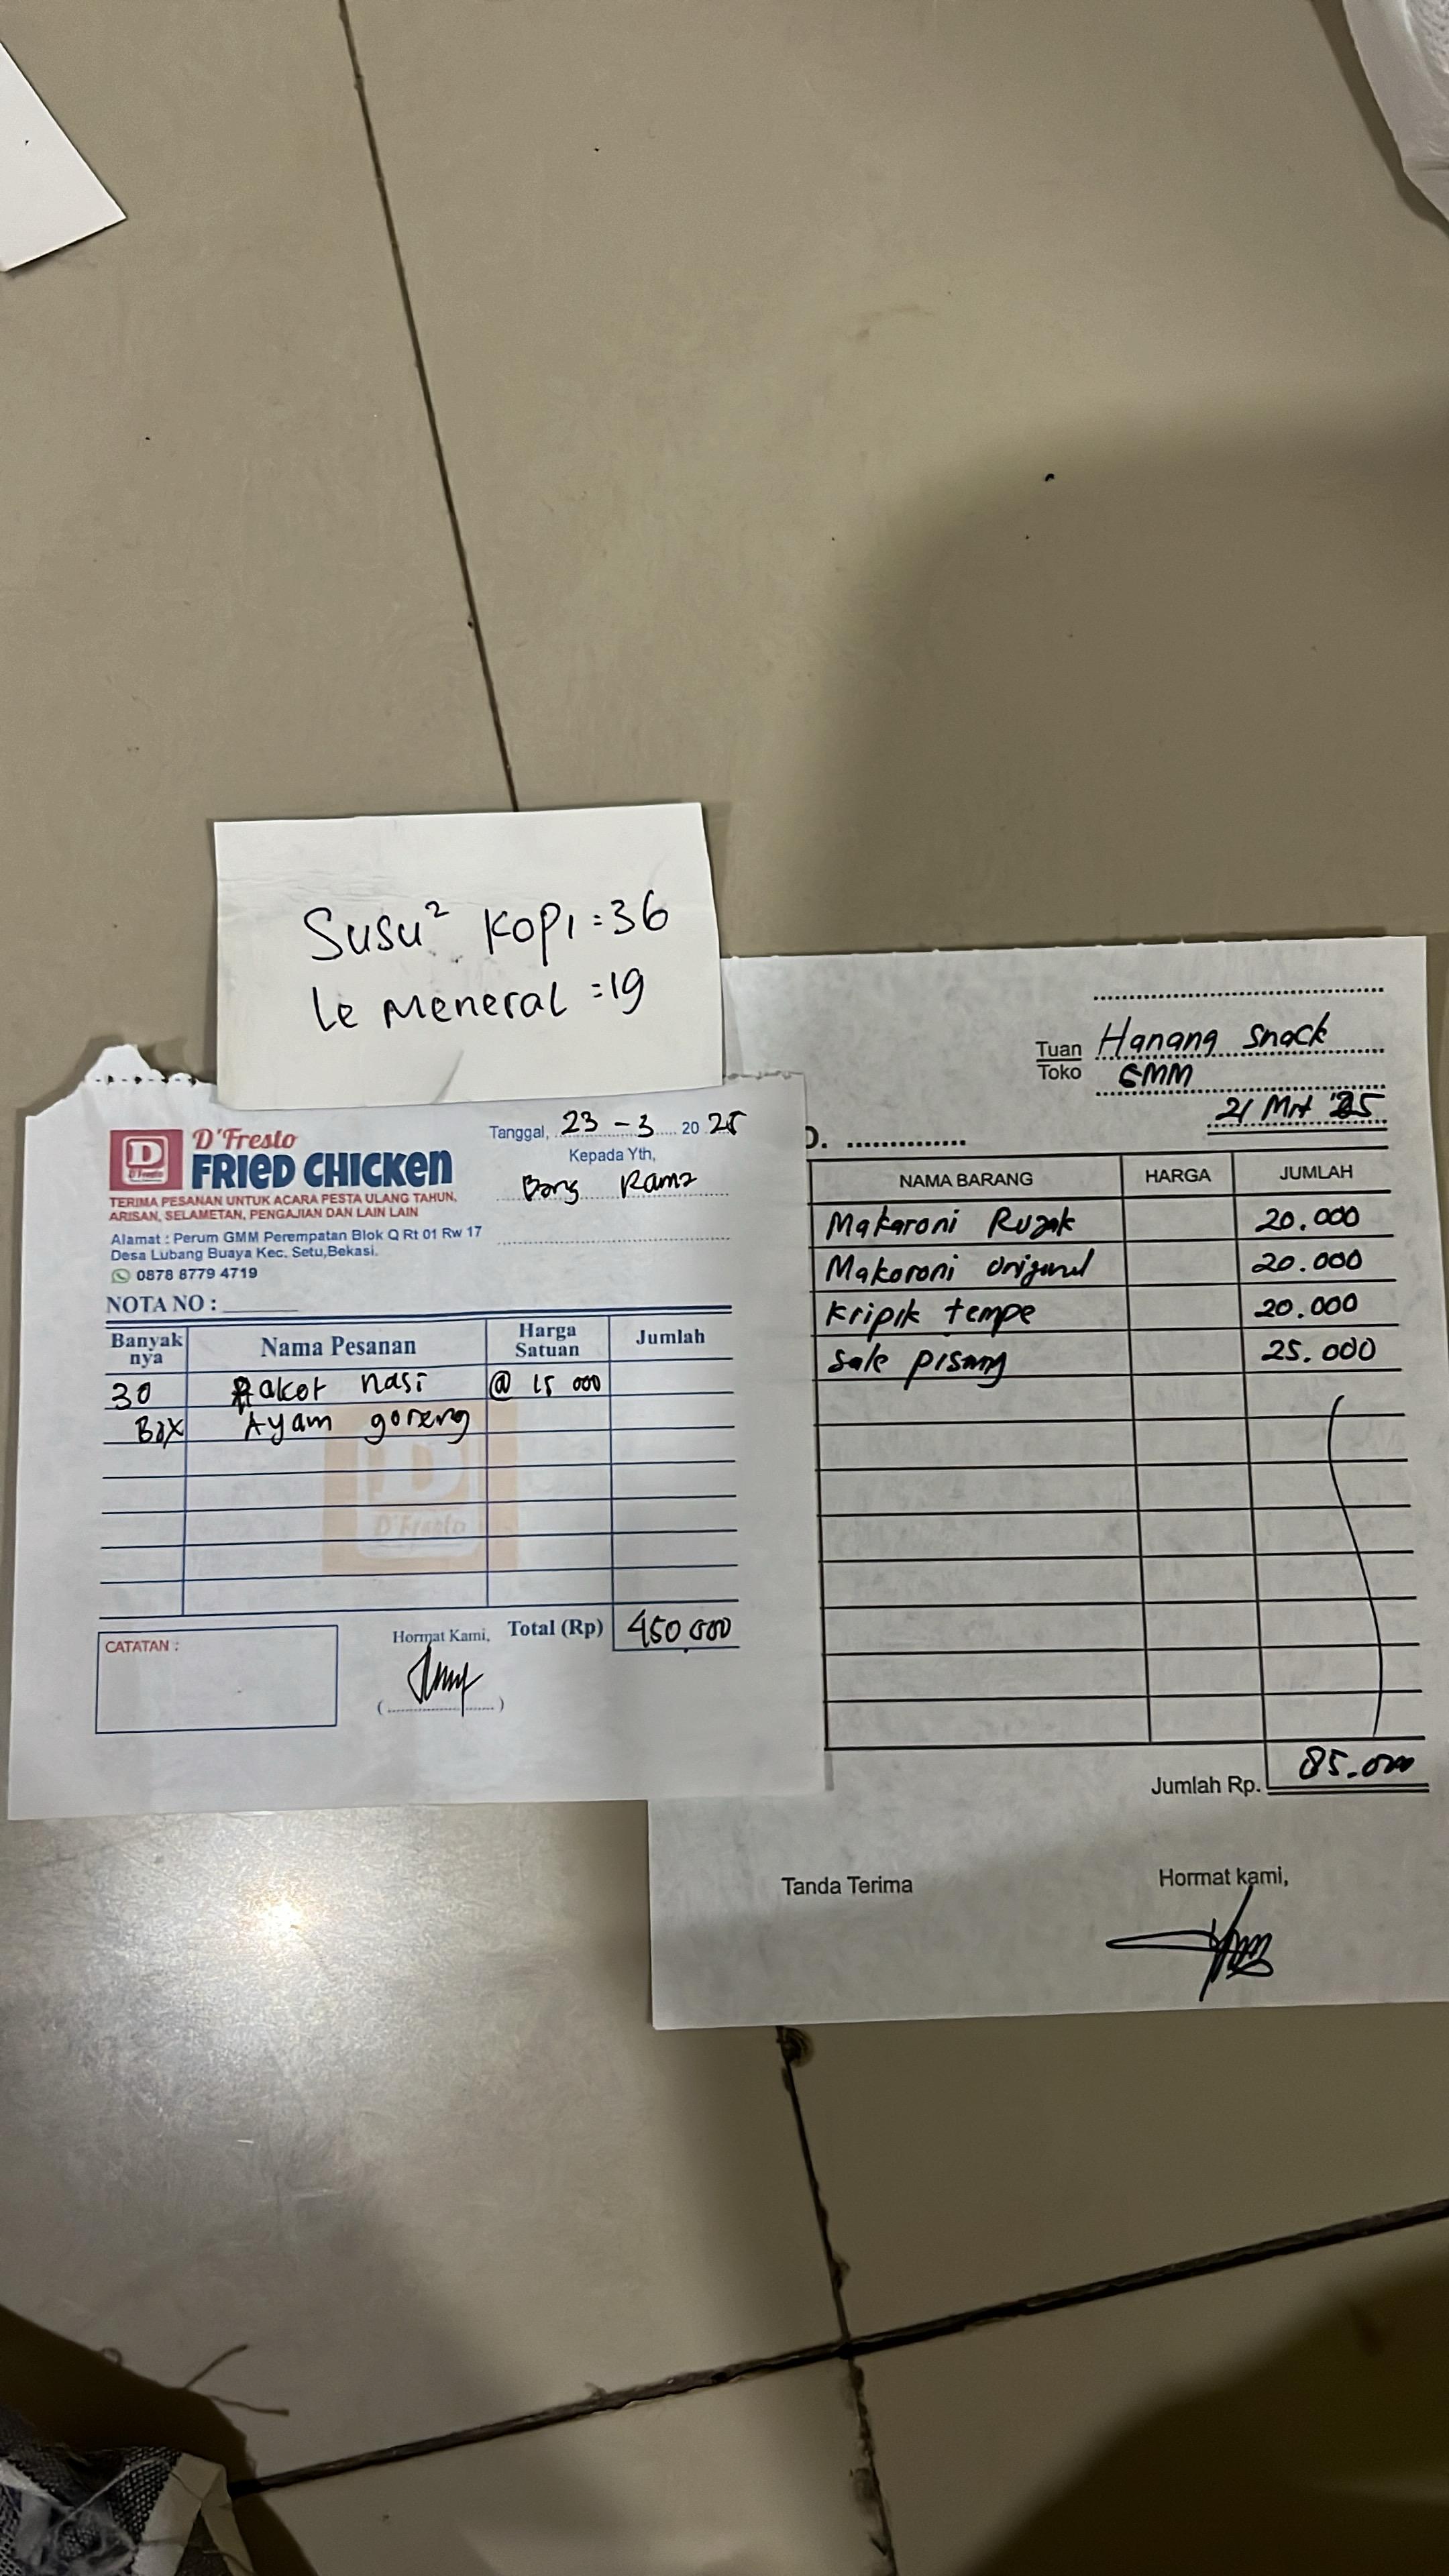 Susu² Kopi = 36
Le Meneral = 19
D'Fresto
FRIED CHICKEN
TERIMA PESANAN UNTUK ACARA PESTA ULANG TAHUN,
ARISAN, SELAMETAN, PENGAJIAN DAN LAIN LAIN
Alamat : Perum GMM Perempatan Blok Q Rt 01 Rw 17
Desa Lubang Buaya Kec. Setu,Bekasi.
0878 8779 4719
NOTA NO :
Tanggal, 23 - 3 20 25
Kepada Yth,
Bang Rama
Banyak nya Nama Pesanan Harga Satuan Jumlah
30 Paket nasi @ 15 000
Box Ayam goreng
D'Fresto
CATATAN :
Hormat Kami,
Total (Rp) 450.000
Tuan
Toko
Hanang Snack
GMM
21 Mrt '25
NAMA BARANG HARGA JUMLAH
Makaroni Rujak 20.000
Makaroni original 20.000
Kripik tempe 20.000
Sale pisang 25.000
Jumlah Rp. 85.000
Tanda Terima
Hormat kami,